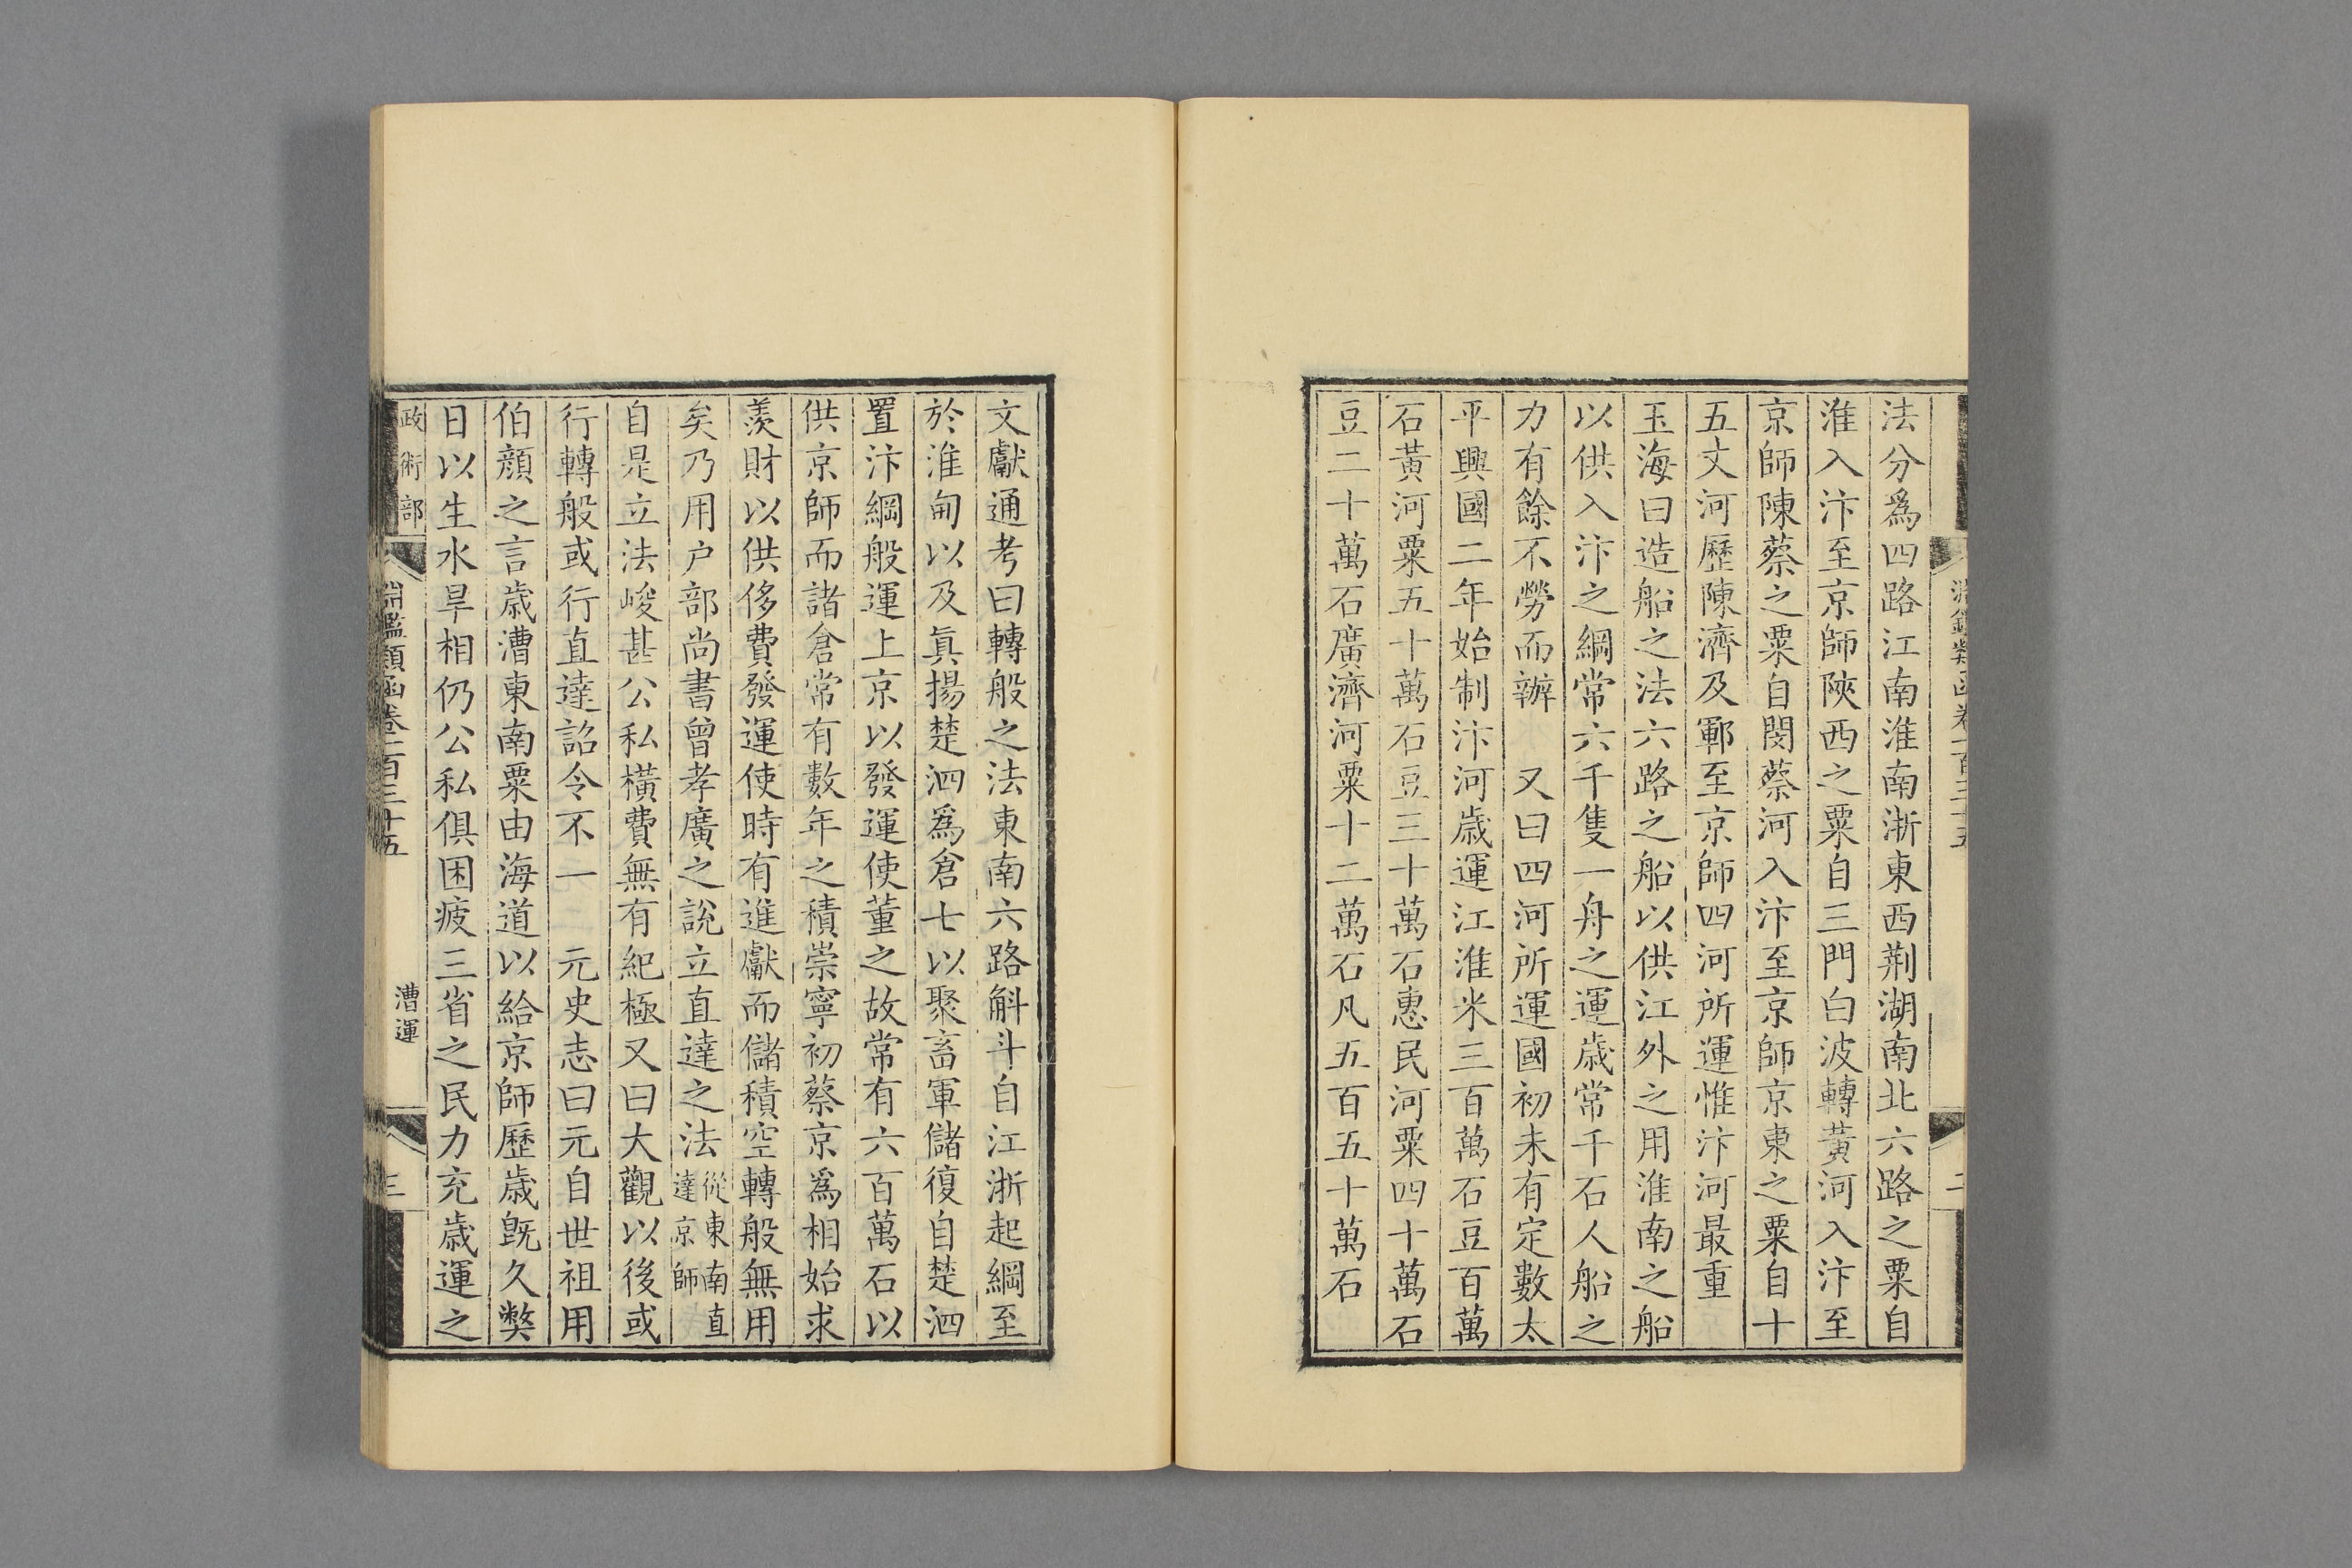 法分爲四路江南淮南浙東西荆湖南北六路之粟自
淮入汴至京師陝西之粟自三門白波轉黃河入汴至
京師陳蔡之粟自閔蔡河入汴至京師京東之粟自十
五丈河歷陳濟及鄆至京師四河所運惟汴河最重
玉海曰造船之法六路之船以供江外之用淮南之船
以供入汴之綱常六千隻一舟之運歲常千石人船之
力有餘不勞而辦　又曰四河所運國初未有定數太
平興國二年始制汴河歲運江淮米三百萬石豆百萬
石黃河粟五十萬石豆三十萬石惠民河粟四十萬石
豆二十萬石廣濟河粟十二萬石凡五百五十萬石
文獻通考曰轉般之法東南六路斛斗自江浙起綱至
於淮甸以及眞揚楚泗爲倉七以聚畜軍儲復自楚泗
置汴綱般運上京以發運使董之故常有六百萬石以
供京師而諸倉常有數年之積崇寧初蔡京爲相始求
羨財以供侈費發運使時有進獻而儲積空轉般無用
矣乃用户部尚書曾孝廣之說立直達之法從東南直達京師
自是立法峻甚公私橫費無有紀極又曰大觀以後或
行轉般或行直達詔令不一　元史志曰元自世祖用
伯顔之言歲漕東南粟由海道以給京師歷歲旣久弊
日以生水旱相仍公私俱困疲三省之民力充歲運之
政術部　淵鑑類函卷一百三十五　漕運　三